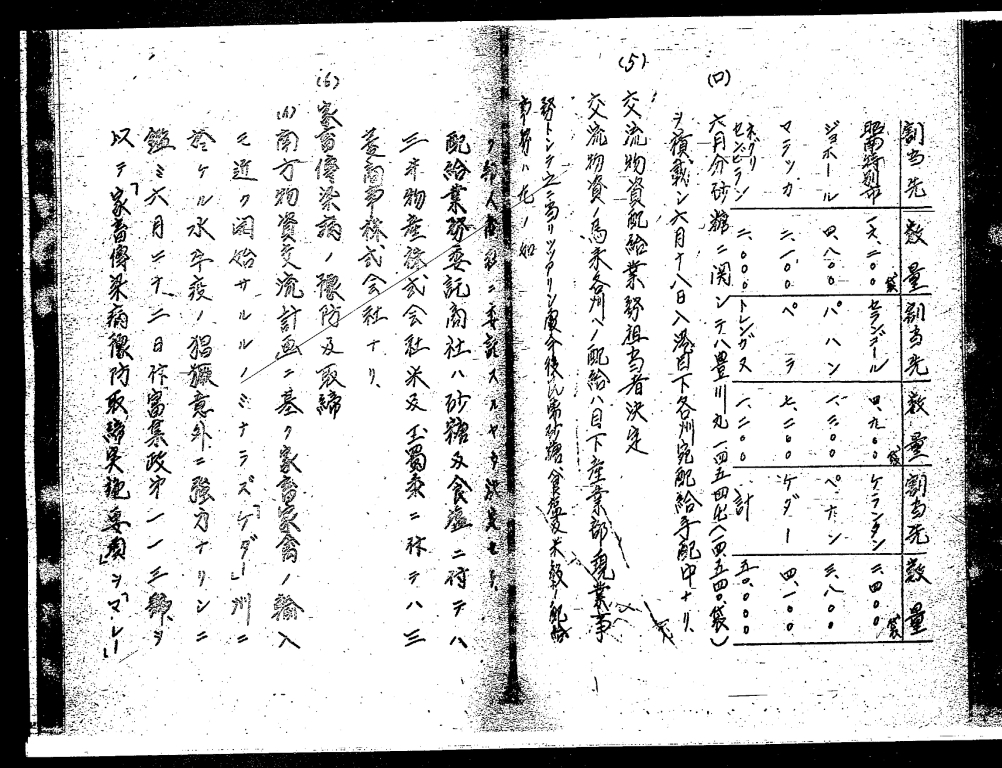 割当先 数量 割当先 数量 割当先 数量
昭南特別市 一六、二〇〇袋 セランゴール 四、九〇〇袋 ケランタン 二、四〇〇袋
ジョホール 四、八〇〇 パハン 一、三〇〇 ペナン 三、八〇〇
マラッカ 二、一〇〇 ペラ 七、二〇〇 ケダー 四、一〇〇
ネグリセンビラン 二、〇〇〇 トレンガヌ 一、二〇〇 計 五〇、〇〇〇
(ロ) 六月分砂糖ニ関シテハ豊川丸一四五四屯(一四五四〇袋)
ヲ積載シ六月十八日入港目下各州宛配給手配中ナリ、
(5) 交流物資配給業務担当者決定
交流物資ノ馬来各州ヘノ配給ハ目下産業部現業事
務トシテ之ニ当リツツアリシ處今後民需砂糖、食塩及米穀ノ配給
業務ハ左ノ如
ク邦人商社ニ委託スルヤウ決定セリ、
配給業務委託商社ハ砂糖及食塩ニ付テハ
三井物産株式会社米及玉蜀黍ニ付テハ三
菱商事株式会社ナリ、
(6) 家畜傳染病ノ豫防及取締
(イ) 南方物資交流計画ニ基ク家畜家禽ノ輸入
モ近ク開始サルルノミナラズ「ケダー」州ニ
於ケル水牛疫ノ猖獗意外ニ強力ナリシニ
鑑ミ六月二十二日附富集政第一一三號ヲ
以テ「家畜傳染病豫防取締実施要領」ヲ「マレー」